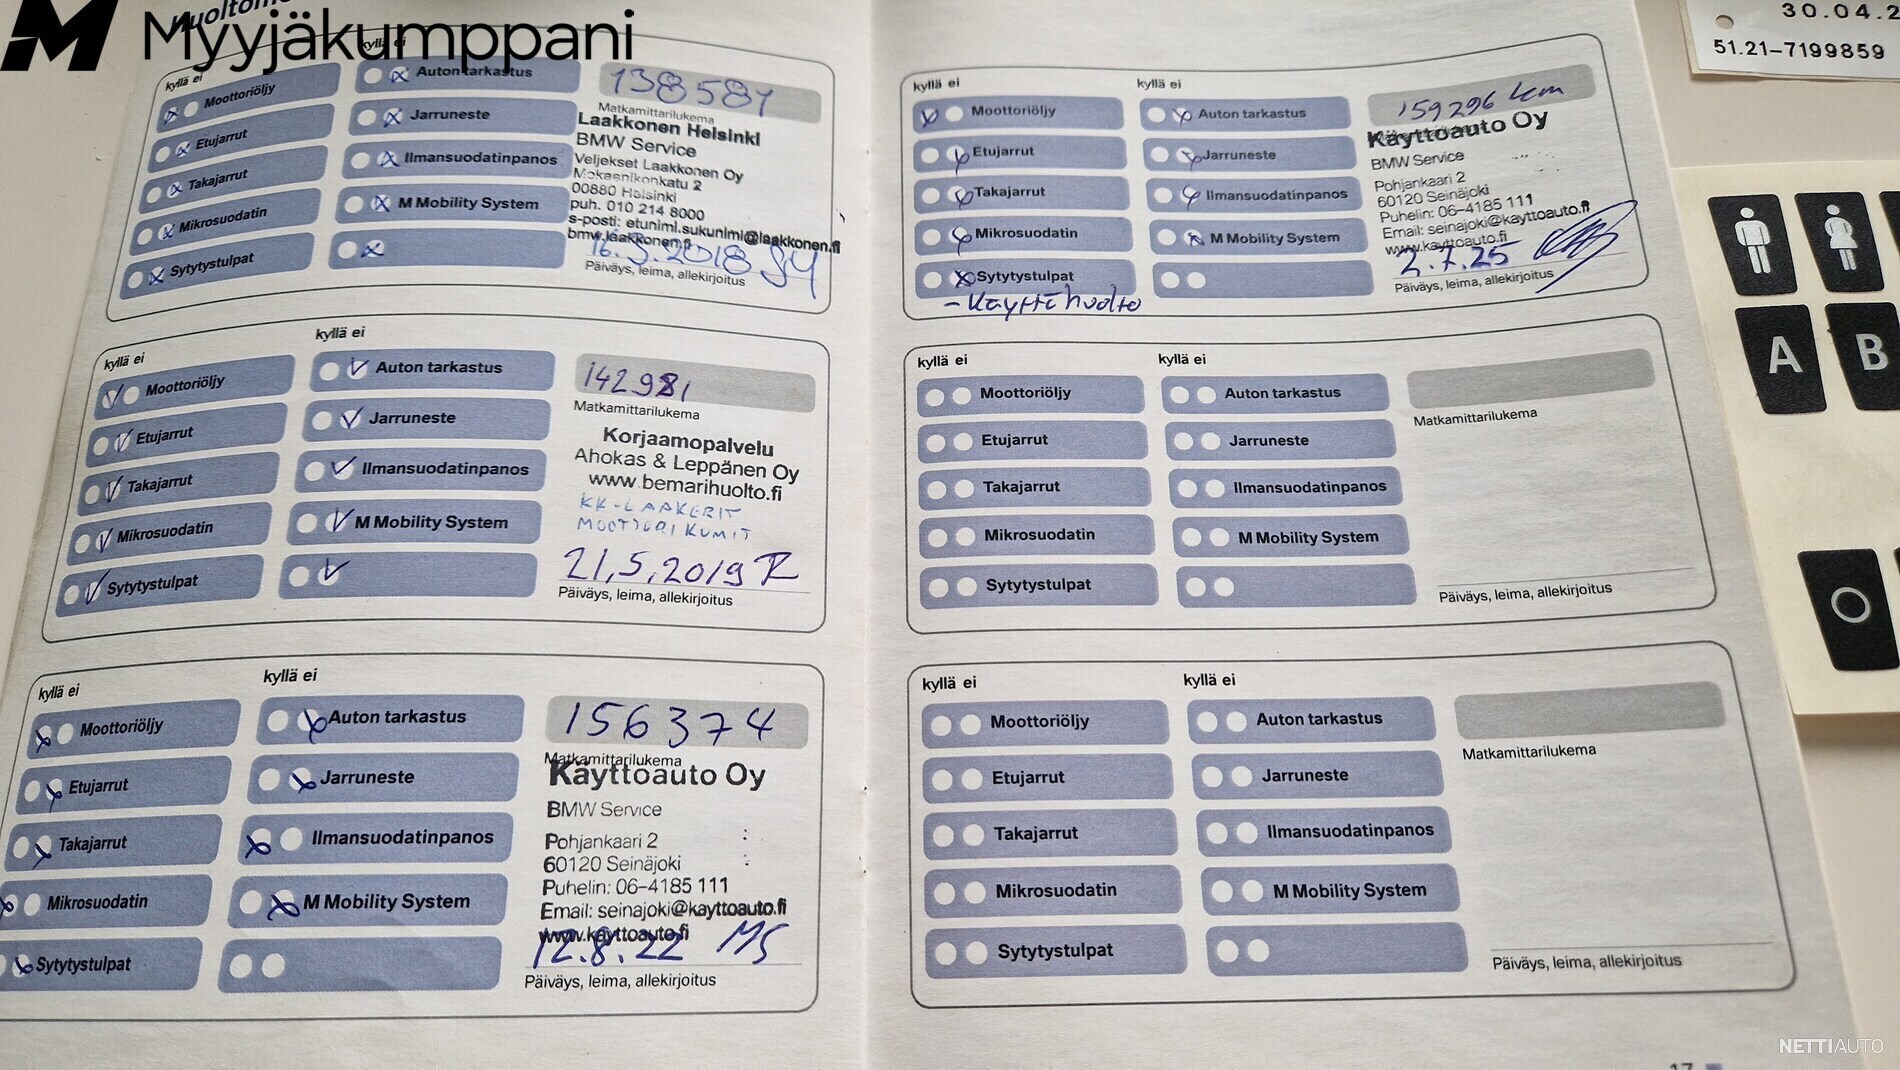 Myyjäkumppani
kyllä ei
kyllä ei
Moottoriöljy
Etujarrut
Takajarrut
Mikrosuodatin
Sytytystulpat
Auton tarkastus
Jarruneste
Ilmansuodatinpanos
M Mobility System
138581
Matkamittarilukema
Laakkonen Helsinki
BMW Service
Veljekset Laakkonen Oy
Mekaanikonkatu 2
00880 Helsinki
puh. 010 214 8000
s-posti: etunimi.sukunimi@laakkonen.fi
bmw.laakkonen.fi
Päiväys, leima, allekirjoitus
kyllä ei
kyllä ei
Moottoriöljy
Etujarrut
Takajarrut
Mikrosuodatin
Sytytystulpat
Auton tarkastus
Jarruneste
Ilmansuodatinpanos
M Mobility System
142981
Matkamittarilukema
Korjaamopalvelu
Ahokas & Leppänen Oy
www.bemarihuolto.fi
KK-LAAKERIT
MOOTTORIKUMIT
21,5,2019
Päiväys, leima, allekirjoitus
kyllä ei
kyllä ei
Moottoriöljy
Etujarrut
Takajarrut
Mikrosuodatin
Sytytystulpat
Auton tarkastus
Jarruneste
Ilmansuodatinpanos
M Mobility System
156374
Matkamittarilukema
Käyttoauto Oy
BMW Service
Pohjankaari 2
60120 Seinäjoki
Puhelin: 06-4185 111
Email: seinajoki@kayttoauto.fi
www.kayttoauto.fi
12.8.22 MS
Päiväys, leima, allekirjoitus
kyllä ei
kyllä ei
Moottoriöljy
Etujarrut
Takajarrut
Mikrosuodatin
Sytytystulpat
- Käyttöhuolto
Auton tarkastus
Jarruneste
Ilmansuodatinpanos
M Mobility System
159296 km
Käyttoauto Oy
BMW Service
Pohjankaari 2
60120 Seinäjoki
Puhelin: 06-4185 111
Email: seinajoki@kayttoauto.fi
www.kayttoauto.fi
2.7.25
Päiväys, leima, allekirjoitus
kyllä ei
kyllä ei
Moottoriöljy
Etujarrut
Takajarrut
Mikrosuodatin
Sytytystulpat
Auton tarkastus
Jarruneste
Ilmansuodatinpanos
M Mobility System
Matkamittarilukema
Päiväys, leima, allekirjoitus
kyllä ei
kyllä ei
Moottoriöljy
Etujarrut
Takajarrut
Mikrosuodatin
Sytytystulpat
Auton tarkastus
Jarruneste
Ilmansuodatinpanos
M Mobility System
Matkamittarilukema
Päiväys, leima, allekirjoitus
17
30.04.2
51.21-7199859
A
B
NETTIAUTO